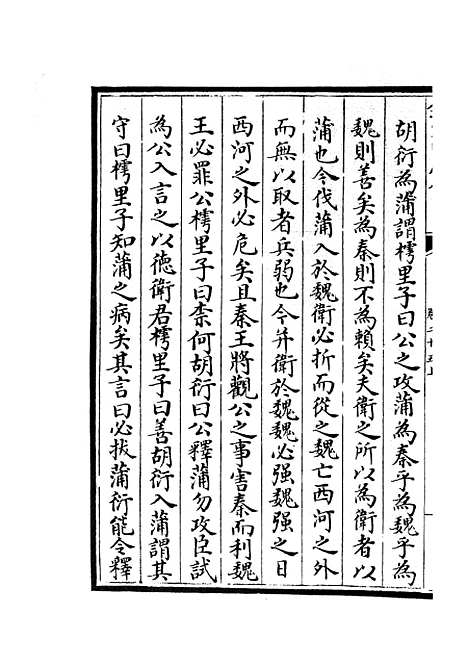 胡衍為蒲謂樗里子曰公之攻蒲為秦乎為魏乎為
魏則善矣為秦則不為賴矣夫衛之所以為衛者以
蒲也今伐蒲入於魏衛必折而從之魏亡西河之外
而無以取者兵弱也今并衛於魏魏必强魏强之日
西河之外必危矣且秦王將觀公之事害秦而利魏
王必罪公樗里子曰柰何胡衍曰公釋蒲勿攻臣試
為公入言之以徳衛君樗里子曰善胡衍入蒲謂其
守曰樗里子知蒲之病矣其言曰必拔蒲衍能令釋